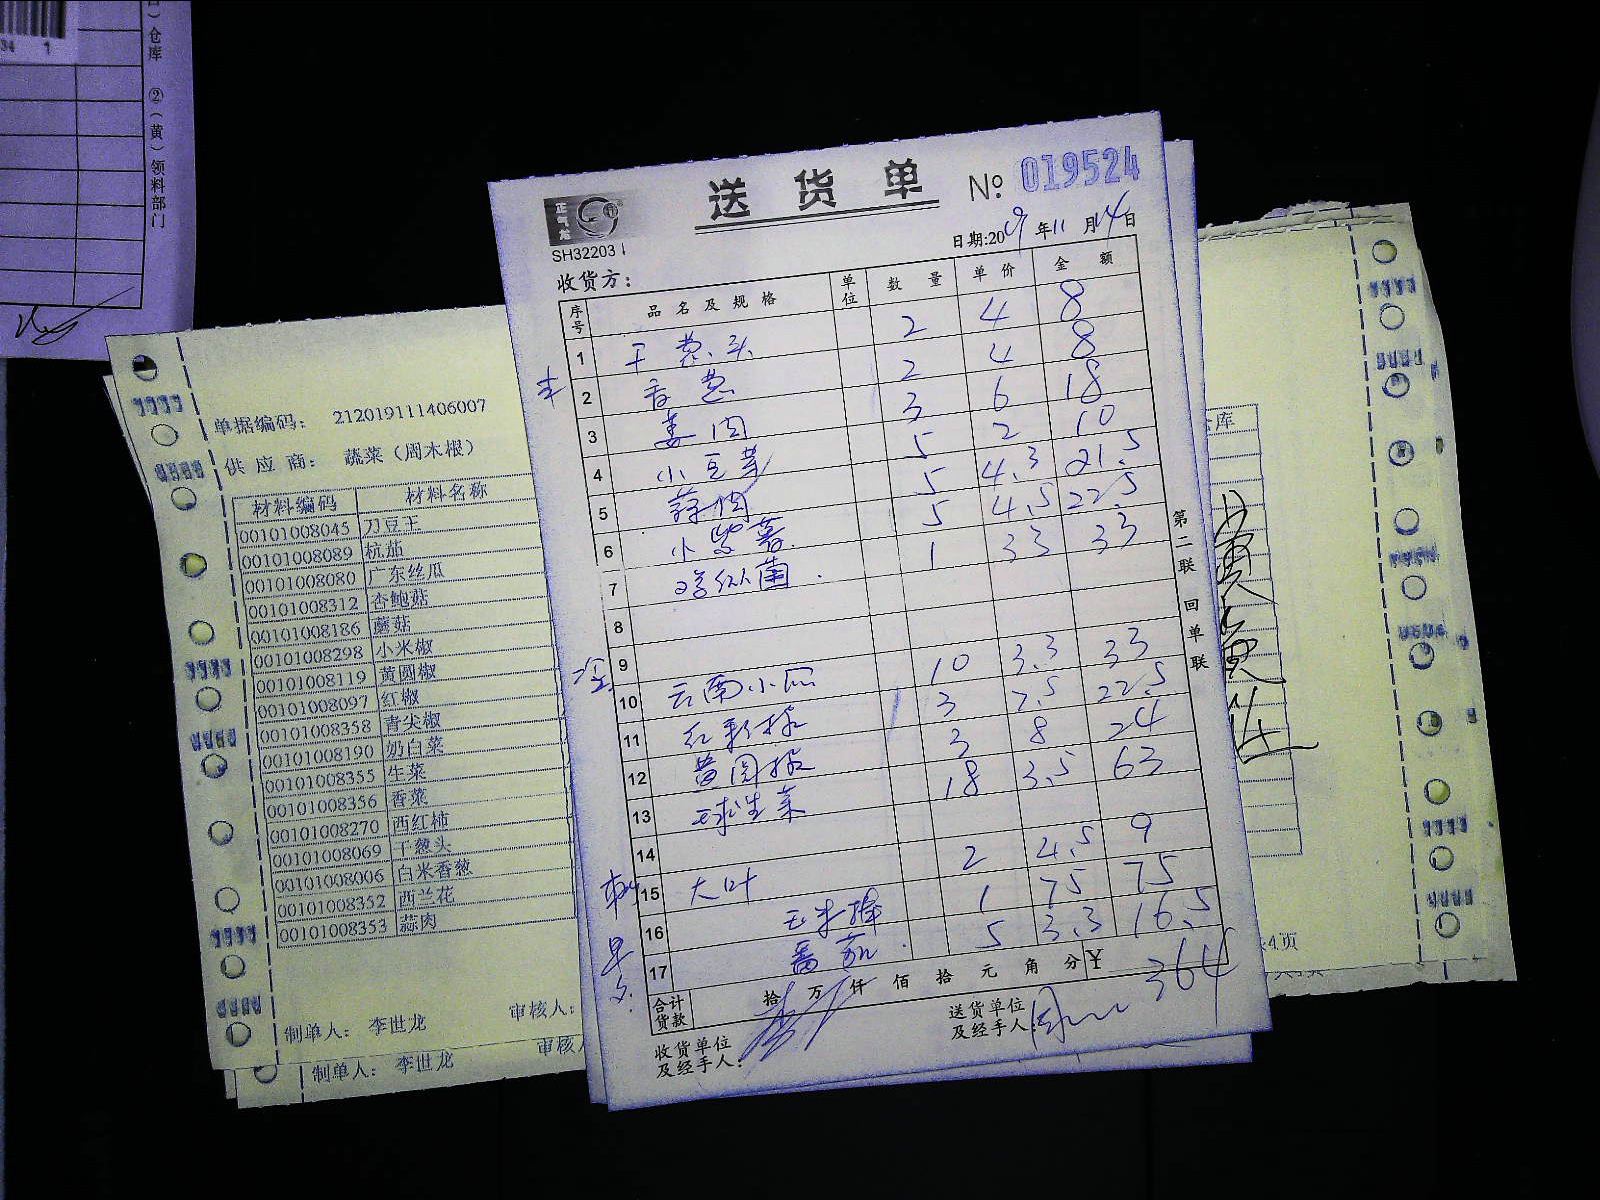 仓库 ②(黄)领料部门
34 1
正气龙
SH32203
送货单 №: 019524
日期:2019年11月14日
收货方:
序号 品名及规格 单位 数量 单价 金额
1 干葱头 2 4 8
2 香葱 2 4 8
3 姜肉 3 6 18
4 小豆芽 5 2 10
5 蒜肉 5 4.3 21.5
6 小紫薯 5 4.5 22.5
7 鸡枞菌 1 33 33
8
9
10 云南小瓜 10 3.3 33
11 红彩椒 3 7.5 22.5
12 黄圆椒 3 8 24
13 球生菜 18 3.5 63
14
15 大叶 2 4.5 9
16 玉米棒 1 75 75
17 番茄 5 3.3 16.5
合计货款 拾 万 仟 佰 拾 元 角 分 ¥ 364
收货单位及经手人:
送货单位及经手人:
第二联 回单联
单据编码: 212019111406007
供应商: 蔬菜(周木根)
材料编码 材料名称
00101008045 刀豆王
00101008089 杭茄
00101008080 广东丝瓜
00101008312 杏鲍菇
00101008186 蘑菇
00101008298 小米椒
00101008119 黄圆椒
00101008097 红椒
00101008358 青尖椒
00101008190 奶白菜
00101008355 生菜
00101008356 香菜
00101008270 西红柿
00101008069 干葱头
00101008006 白米香葱
00101008352 西兰花
00101008353 蒜肉
制单人: 李世龙 审核人:
制单人: 李世龙 审核人
库
4页